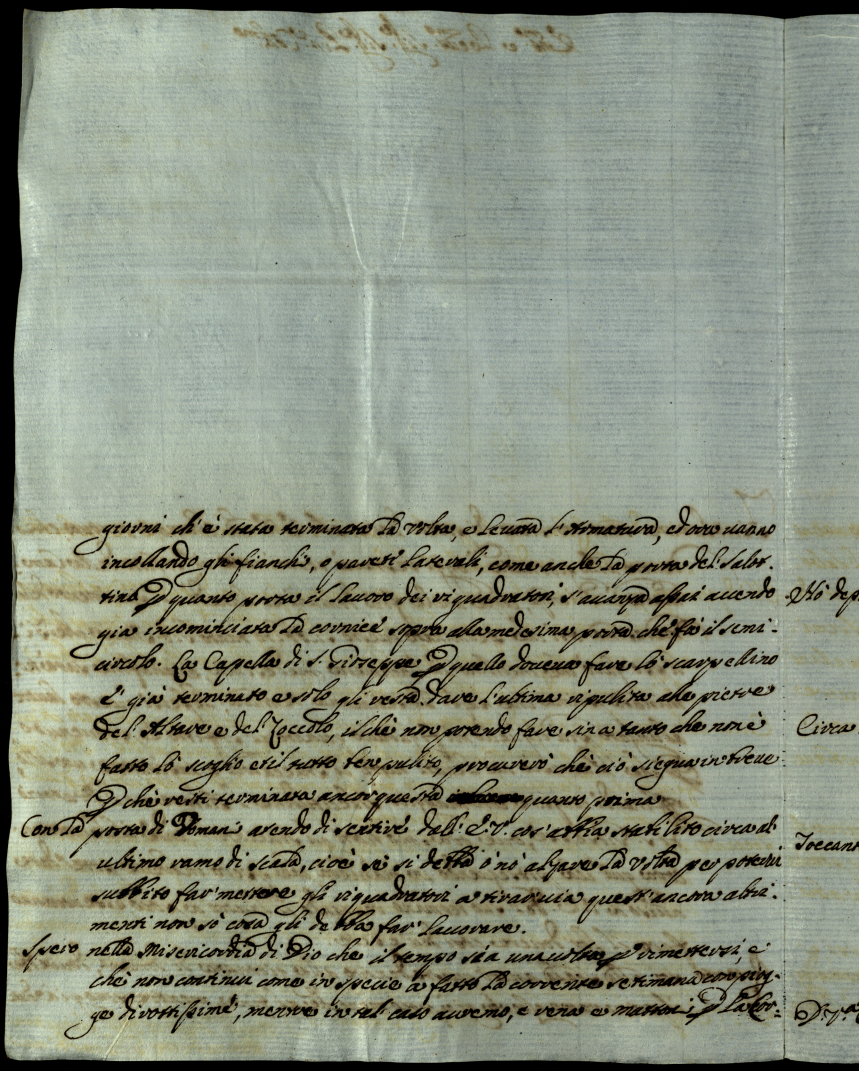 giorni ch'è stata terminata la volta, e levata l'Armatura, ed ora vanno
incollando gli fianchi, o pareti laterali, come anche la porta del Salot-
tino P quanto porta il lavoro dei riquadratori, s'avanza assai avendo
già incominciata la cornice sopra alla medesima porta che fà il semi-
circolo. La Capella di S. Giuseppe P quello doveva fare lo scarpellino
è già terminato e solo gli resta dare l'ultima ripulita alle pietre
del Altare e del Zoccolo, il chè non potendo fare sin a tanto che non è
fatto lo scoglio et il tutto ben pulito, procurerò chè ciò siegua in breve
P chè resti terminata ancor questa quanto prima
Con la posta di Doman' atendo di sentire dall' E. V. cos' abbia stabilito circa al
ultimo ramo di scala, cioè sè si debba ò nò alzare la volta per potervi
subbito far mettere gli riquadratori a tirar via quest'ancora altri-
menti non sò cosa gli debba far' lavorare.
Spero nella Misericordia di Dio che il tempo sia una volta P rimettersi, e
chè non continui come in specie à fatto la corrente setimana con piog-
ge dirottissime, mentre in tal caso avremo, e rena e mattoni P la
Nò
Circa
Toccant